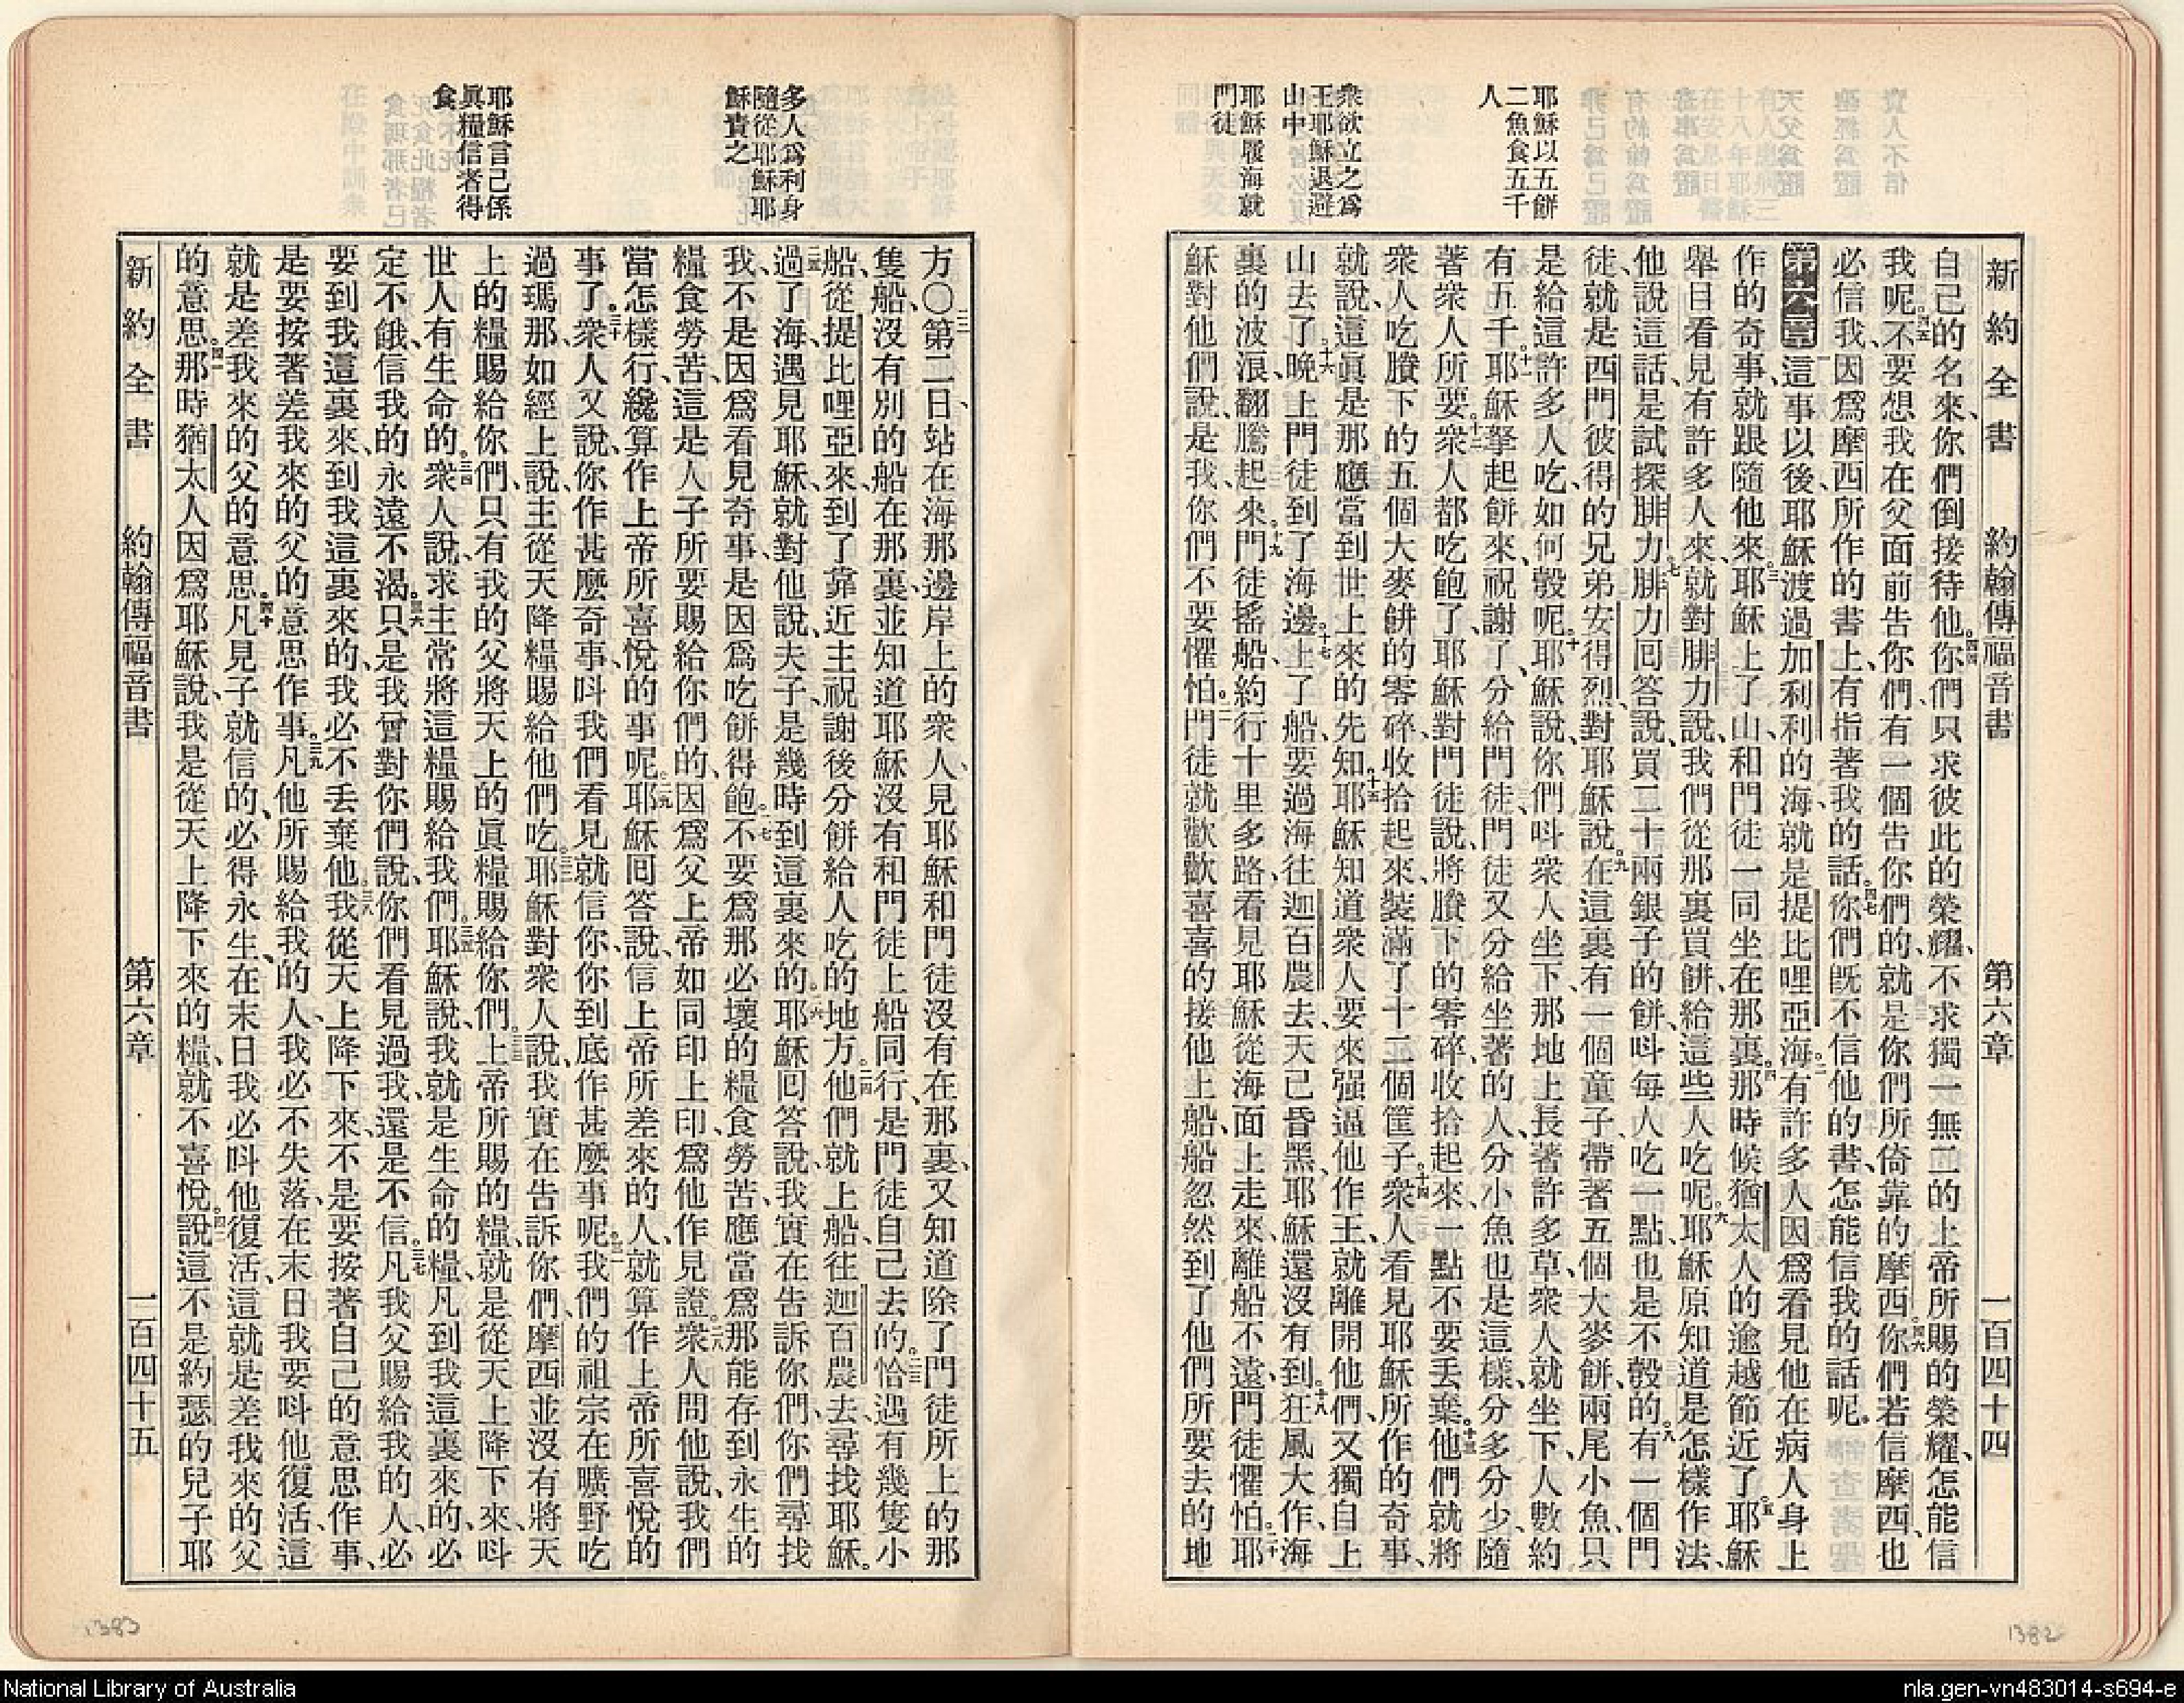 新約全書 約翰傳福音書 第六章 一百四十四
耶穌以五餅
二魚食五千
人
衆欲立之爲
王耶穌退避
山中
耶穌履海就
門徒
自己的名來、你們倒接待他。四四你們只求彼此的榮耀、不求獨一無二的上帝所賜的榮耀、怎能信
我呢。四五不要想我在父面前告你們、有一個告你們的、就是你們所倚靠的摩西。四六你們若信摩西、也
必信我、因爲摩西所作的書上、有指著我的話。四七你們旣不信他的書、怎能信我的話呢。
第六章一這事以後、耶穌渡過加利利的海、就是提比哩亞海。二有許多人、因爲看見他在病人身上
作的奇事、就跟隨他來。三耶穌上了山、和門徒一同坐在那裏。四那時候猶太人的逾越節近了。五耶穌
舉目看見有許多人來、就對腓力說、我們從那裏買餅、給這些人吃呢。六耶穌原知道是怎樣作法、
他說這話、是試探腓力。七腓力回答說、買二十兩銀子的餅、呌每人吃一點、也是不彀的。八有一個門
徒、就是西門彼得的兄弟安得烈、對耶穌說。九在這裏有一個童子、帶著五個大麥餅、兩尾小魚、只
是給這許多人吃、如何彀呢。十耶穌說、你們呌衆人坐下、那地上長著許多草、衆人就坐下、人數約
有五千。十一耶穌拏起餅來、祝謝了、分給門徒、門徒又分給坐著的人、分小魚也是這樣、分多分少、隨
著衆人所要。十二衆人都吃飽了、耶穌對門徒說、將賸下的零碎、收拾起來、一點不要丟棄。十三他們就將
衆人吃賸下的五個大麥餅的零碎、收拾起來、裝滿了十二個筐子。十四衆人看見耶穌所作的奇事、
就說、這眞是那應當到世上來的先知。十五耶穌知道衆人要來强逼他作王、就離開他們、又獨自上
山去了。十六晚上門徒到了海邊。十七上了船、要過海往迦百農去、天已昏黑、耶穌還沒有到。十八狂風大作、海
裏的波浪、翻騰起來。十九門徒搖船、約行十里多路、看見耶穌從海面上走來、離船不遠、門徒懼怕。二十耶
穌對他們說、是我、你們不要懼怕。二一門徒就歡歡喜喜的接他上船、船忽然到了他們所要去的地
新約全書 約翰傳福音書 第六章 一百四十五
多人爲利身
隨從耶穌耶
穌責之
耶穌言己係
眞糧信者得
食
方〇二二第二日、站在海那邊岸上的衆人、見耶穌和門徒沒有在那裏、又知道除了門徒所上的那
隻船、沒有別的船在那裏、並知道耶穌沒有和門徒上船同行、是門徒自己去的。二三恰遇有幾隻小
船、從提比哩亞來、到了靠近主祝謝後分餅給人吃的地方。二四他們就上船、往迦百農去、尋找耶穌。
二五過了海、遇見耶穌、就對他說、夫子、是幾時到這裏來的。二六耶穌回答說、我實在告訴你們、你們尋找
我、不是因爲看見奇事、是因爲吃餅得飽。二七不要爲那必壞的糧食勞苦、應當爲那能存到永生的
糧食勞苦、這是人子所要賜給你們的、因爲父上帝如同印上印、爲他作見證。二八衆人問他說、我們
當怎樣行、纔算作上帝所喜悅的事呢。二九耶穌回答說、信上帝所差來的人、就算作上帝所喜悅的
事了。三十衆人又說、你作甚麼奇事、呌我們看見就信你、你到底作甚麼事呢。三一我們的祖宗在曠野吃
過瑪那、如經上說、主從天降糧賜給他們吃。三二耶穌對衆人說、我實在告訴你們、摩西並沒有將天
上的糧賜給你們、只有我的父將天上的眞糧賜給你們。三三上帝所賜的糧、就是從天上降下來、呌
世人有生命的。三四衆人說、求主常將這糧賜給我們。三五耶穌說、我就是生命的糧、凡到我這裏來的、必
定不餓、信我的、永遠不渴。三六只是我曾對你們說、你們看見過我、還是不信。三七凡我父賜給我的人、必
要到我這裏來、到我這裏來的、我必不丟棄他。三八我從天上降下來、不是要按著自己的意思作事、
是要按著差我來的父的意思作事。三九凡他所賜給我的人、我必不失落、在末日我要呌他復活、這
就是差我來的父的意思。四十凡見子就信的、必得永生、在末日我必呌他復活、這就是差我來的父
的意思。四一那時猶太人因爲耶穌說、我是從天上降下來的糧、就不喜悅。四二說、這不是約瑟的兒子耶
1383
1382
National Library of Australia
nla.gen-vn483014-s694-e